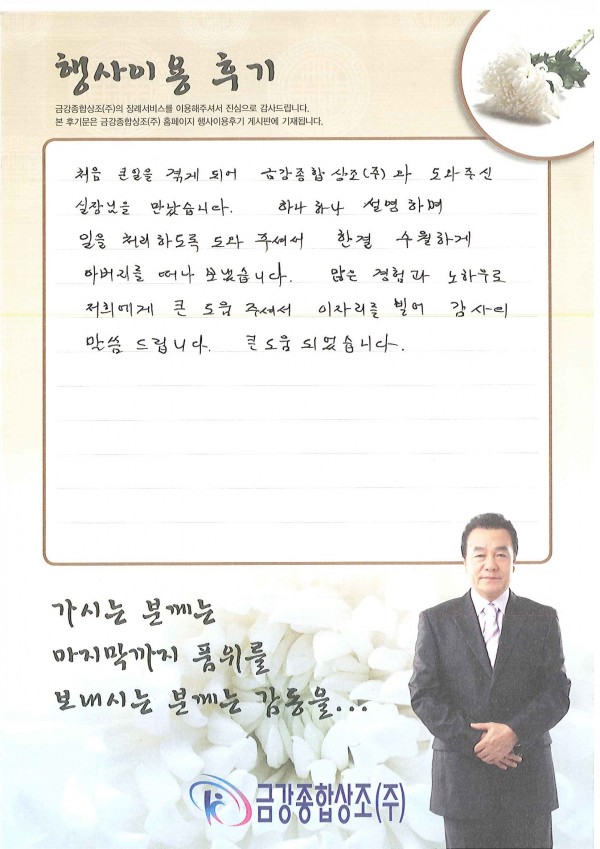 행사이용 후기
금강종합상조(주)의 장례서비스를 이용해주셔서 진심으로 감사드립니다.
본 후기문은 금강종합상조(주) 홈페이지 행사이용후기 게시판에 기재됩니다.
처음 큰일을 겪게 되어 금강종합상조(주)과 도와주신
실장님을 만났습니다. 하나 하나 설명하며
일을 처리하도록 도와 주셔서 한결 수월하게
아버지를 떠나 보냈습니다. 많은 경험과 노하우로
저희에게 큰 도움 주셔서 이자리를 빌어 감사의
말씀 드립니다. 큰도움 되었습니다.
가시는 분께는
마지막까지 품위를
보내시는 분께는 감동을...
금강종합상조(주)